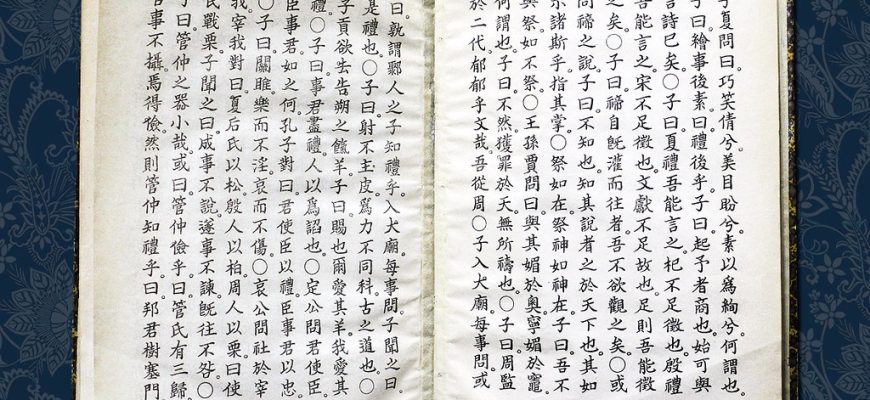 子夏問曰。巧笑倩兮。美目盼兮。素以爲絢兮。何謂也。
子曰。繪事後素。曰。禮後乎。子曰。起予者商也。始可與
言詩已矣。○子曰。夏禮吾能言之。杞不足徵也。殷禮
吾能言之。宋不足徵也。文獻不足故也。足則吾能徵
之矣。○子曰。禘自旣灌而往者。吾不欲觀之矣。○或
問禘之說。子曰。不知也。知其說者之於天下也。其如
示諸斯乎。指其掌。○祭如在。祭神如神在。子曰。吾不
與祭。如不祭。○王孫賈問曰。與其媚於奧。寧媚於竈。
何謂也。子曰。不然。獲罪於天。無所禱也。○子曰。周監
於二代。郁郁乎文哉。吾從周。○子入大廟。每事問。或
曰。孰謂鄹人之子知禮乎。入大廟。每事問。子聞之曰。
是禮也。○子曰。射不主皮。爲力不同科。古之道也。○
子貢欲去告朔之餼羊。子曰。賜也。爾愛其羊。我愛其
禮。○子曰。事君盡禮。人以爲諂也。○定公問君使臣。
臣事君。如之何。孔子對曰。君使臣以禮。臣事君以忠。
○子曰。關雎樂而不淫。哀而不傷。○哀公問社於宰
我。宰我對曰。夏后氏以松。殷人以柏。周人以栗。曰使
民戰栗。子聞之曰。成事不說。遂事不諫。旣往不咎。○
子曰。管仲之器小哉。或曰。管仲儉乎。曰。管氏有三歸。
官事不攝。焉得儉。然則管仲知禮乎。曰。邦君樹塞門。